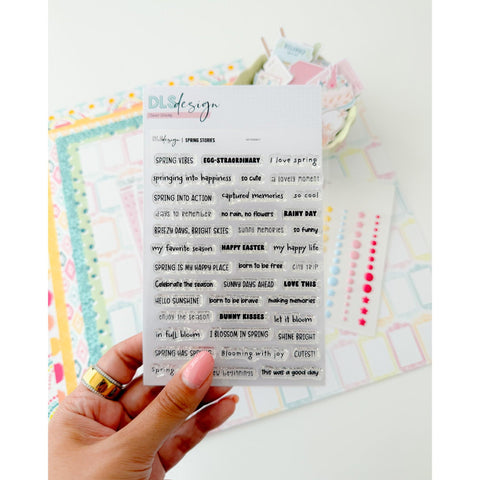 DLSdesign
DLSdesign | SPRING STORIES
SPRING VIBES EGG-STRAORDINARY I love spring
springing into happiness so cute a lovely moment
SPRING INTO ACTION captured memories so cool
days to remember no rain, no flowers RAINY DAY
BREEZY DAYS, BRIGHT SKIES sunny memories so funny
my favorite season HAPPY EASTER my happy life
SPRING IS MY HAPPY PLACE born to be free city trip
Celebrate the season SUNNY DAYS AHEAD LOVE THIS
HELLO SUNSHINE born to be brave making memories
enjoy the season BUNNY KISSES let it bloom
in full bloom I BLOSSOM IN SPRING SHINE BRIGHT
SPRING HAS Blooming with joy CUTEST!
spring new beginnings This was a good day